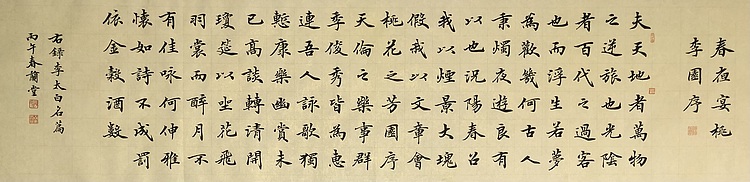 春夜宴桃
李園序
夫天地者萬物
之逆旅也光陰
者百代之過客
也而浮生若夢
為歡幾何古人
秉燭夜遊良有
以也況陽春召
我以煙景大塊
假我以文章會
桃花之芳園序
天倫之樂事群
季俊秀皆為惠
連吾人詠歌獨
慙康樂幽賞未
已高談轉清開
瓊筵以坐花飛
羽裳而醉月不
有佳咏何伸雅
懷如詩不成罰
依金穀酒數
右錄李太白名篇
丙午春蘭堂